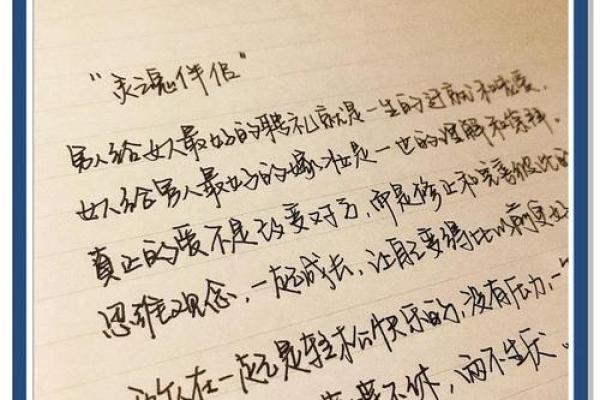 “灵魂伴侣”
男人给女人最好的聘礼就是一生的迁就和宠爱,
女人给男人最好的嫁妆是一世的理解和崇拜.
真正的爱不是改变对方,而是修正和完善彼此的
思维观念,一起成长,让自己变得比以前更好
人在一起是轻松快乐的,没有压力,一
不休,两不生厌。